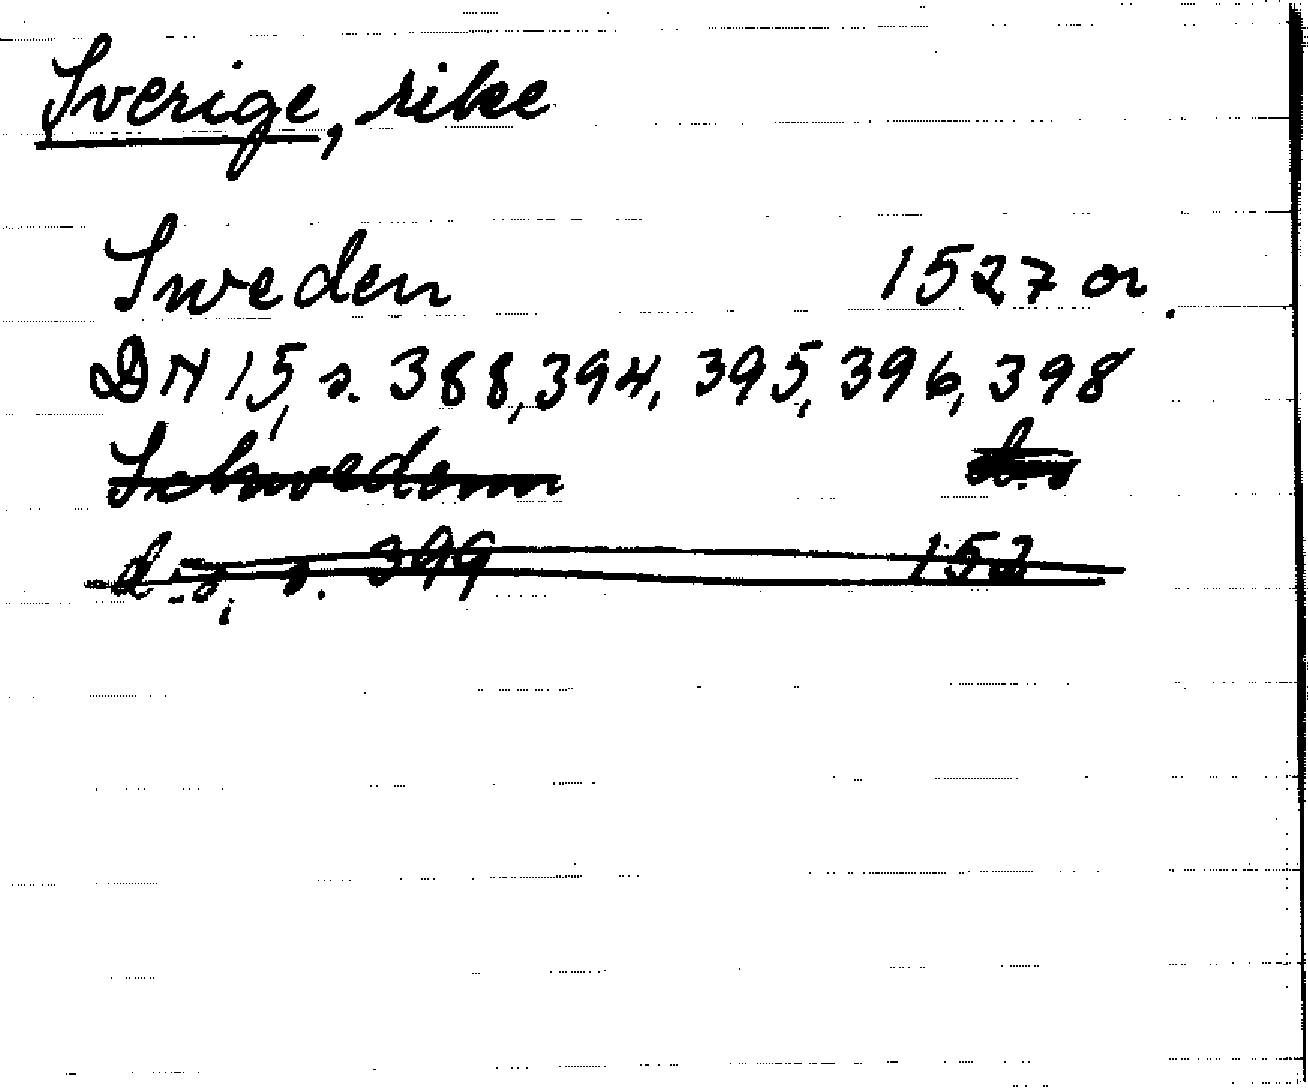 Sverige, rike
Sweden 1527 or.
DN 15, s. 388, 394, 395, 396, 398
Schwedenn
d:o, s. 399 152